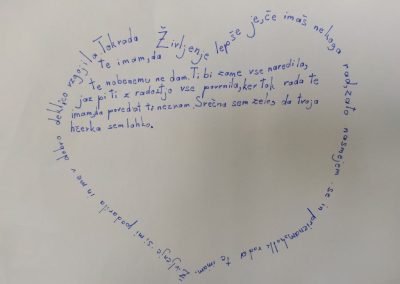 Življenje lepše je, če imaš nekoga rad, zato nasmejem se in priznam, kolk rada te imam. Ti življenje si mi podarila in me v dobro deklico vzgojila. Tok rada
te imam, da
te nobenemu ne dam. Ti bi zame vse naredila,
jaz pi ti z radostjo vse povrnila, ker tok rada te
imam, da povedat ti neznam. Srečna sem zelo, da tvoja
hčerka sem lahko.